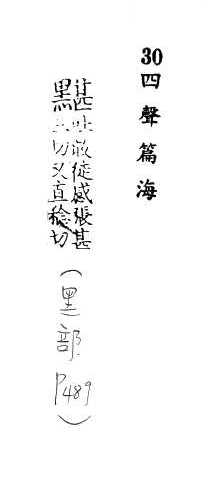 30 四聲篇海
黮吐敢徒感張甚三切又直稔切(黑部 P489)